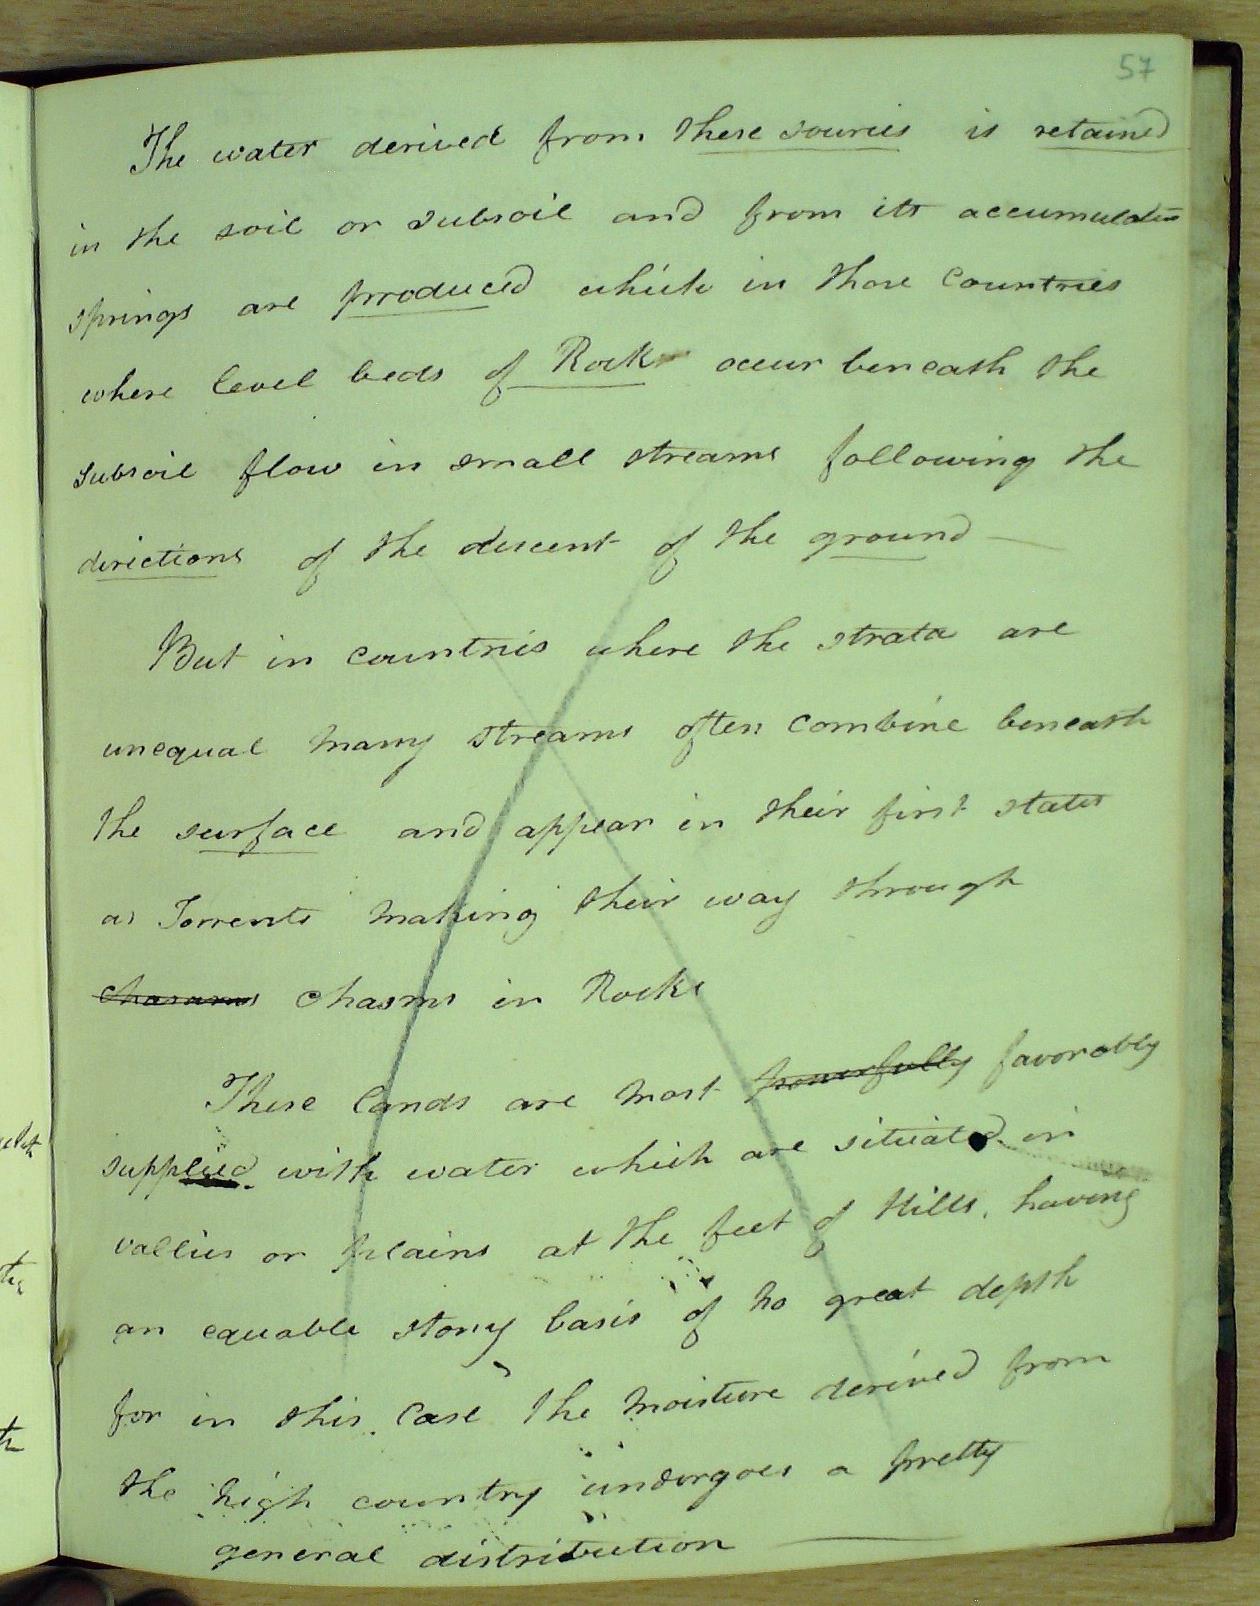 57
The water derived from these sources is retained
in the soil or subsoil and from its accumulation
springs are produced which in those countries
where level beds of Rock occur beneath the
subsoil flow in small streams following the
directions of the descent of the ground —
But in countries where the strata are
unequal many streams often combine beneath
the surface and appear in their first states
as Torrents making their way through
chasams chasms in Rocks
These lands are most powerfully favorably
supplied with water which are situated in
vallies or plains at the feet of Hills, having
an equable stony basis of no great depth
for in this case the moisture derived from
the high country undergoes a pretty
general distribution —